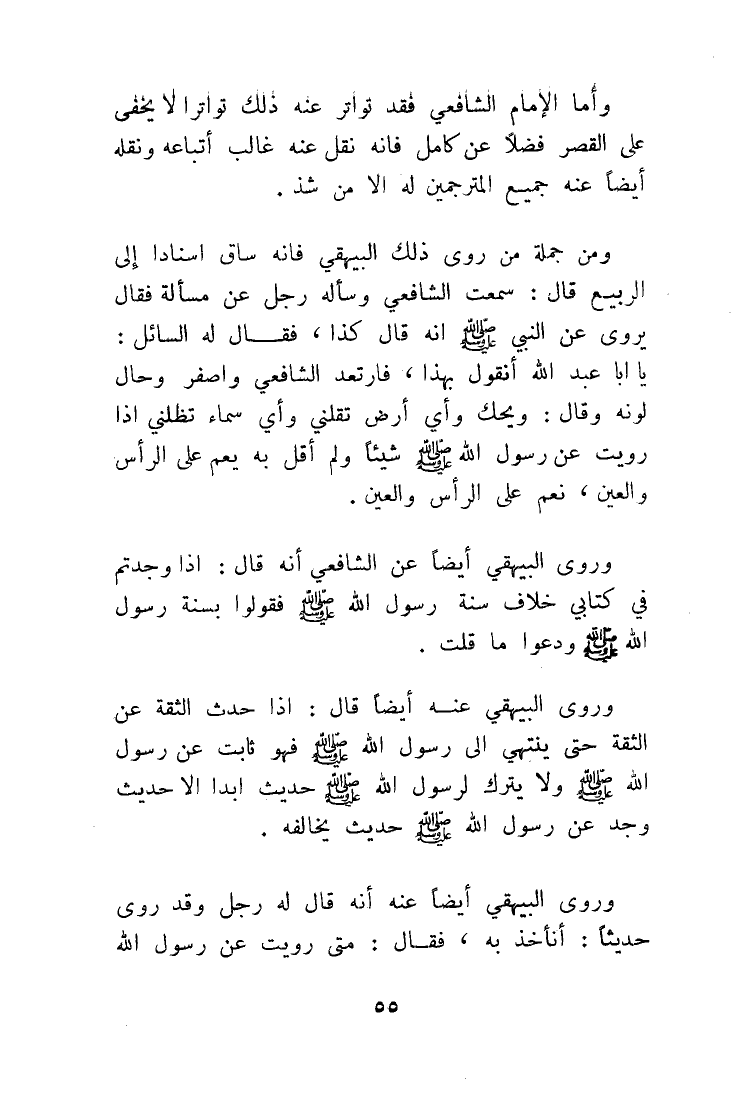 وأما الإمام الشافعي فقد تواتر عنه ذلك تواترا لا يخفى
على القصر فضلاً عن كامل فانه نقل عنه غالب أتباعه ونقله
أيضاً عنه جميع المترجمين له الا من شذ .
ومن جملة من روى ذلك البيهقي فانه ساق اسنادا إلى
الربيع قال : سمعت الشافعي وسأله رجل عن مسألة فقال
يروى عن النبي ﷺ انه قال كذا ، فقال له السائل :
يا ابا عبد الله أنقول بهذا ، فارتعد الشافعي واصفر وحال
لونه وقال : ويحك وأي أرض تقلني وأي سماء تظلني اذا
رويت عن رسول الله ﷺ شيئاً ولم أقل به يعم على الرأس
والعين ، نعم على الرأس والعين .
وروى البيهقي أيضاً عن الشافعي أنه قال : اذا وجدتم
في كتابي خلاف سنة رسول الله ﷺ فقولوا بسنة رسول
الله ﷺ ودعوا ما قلت .
وروى البيهقي عنه أيضاً قال : اذا حدث الثقة عن
الثقة حتى ينتهي الى رسول الله ﷺ فهو ثابت عن رسول
الله ﷺ ولا يترك لرسول الله ﷺ حديث ابدا الا حديث
وجد عن رسول الله ﷺ حديث يخالفه .
وروى البيهقي أيضاً عنه أنه قال له رجل وقد روى
حديثاً : أنأخذ به ، فقال : متى رويت عن رسول الله
٥٥